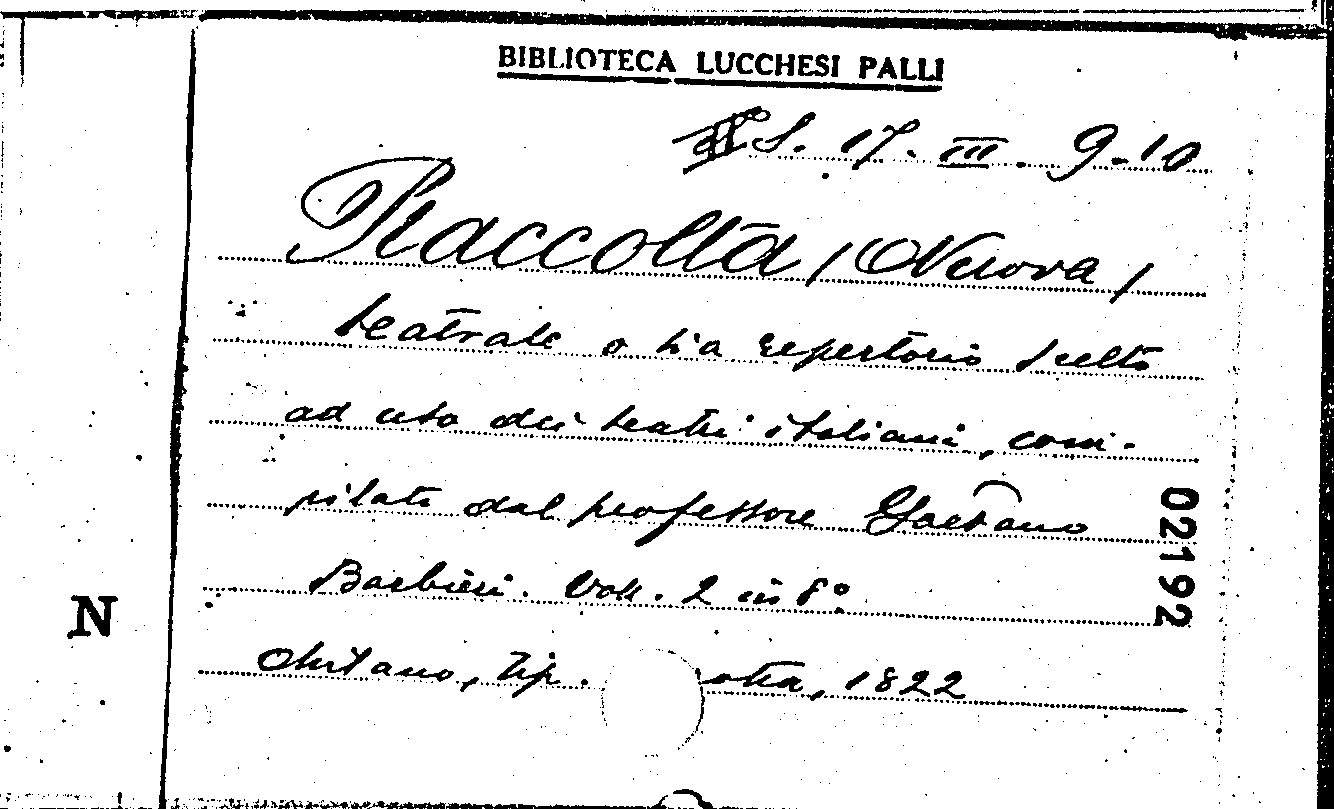 BIBLIOTECA LUCCHESI PALLI
S. 17. III. 9-10
Raccolta (Nuova)
teatrale o sia repertorio scelto
ad uso dei teatri italiani, com-
pilato dal professore Gaetano
Barbieri. Voll. 2 in 8°
Milano, tip. 1822
02192
N